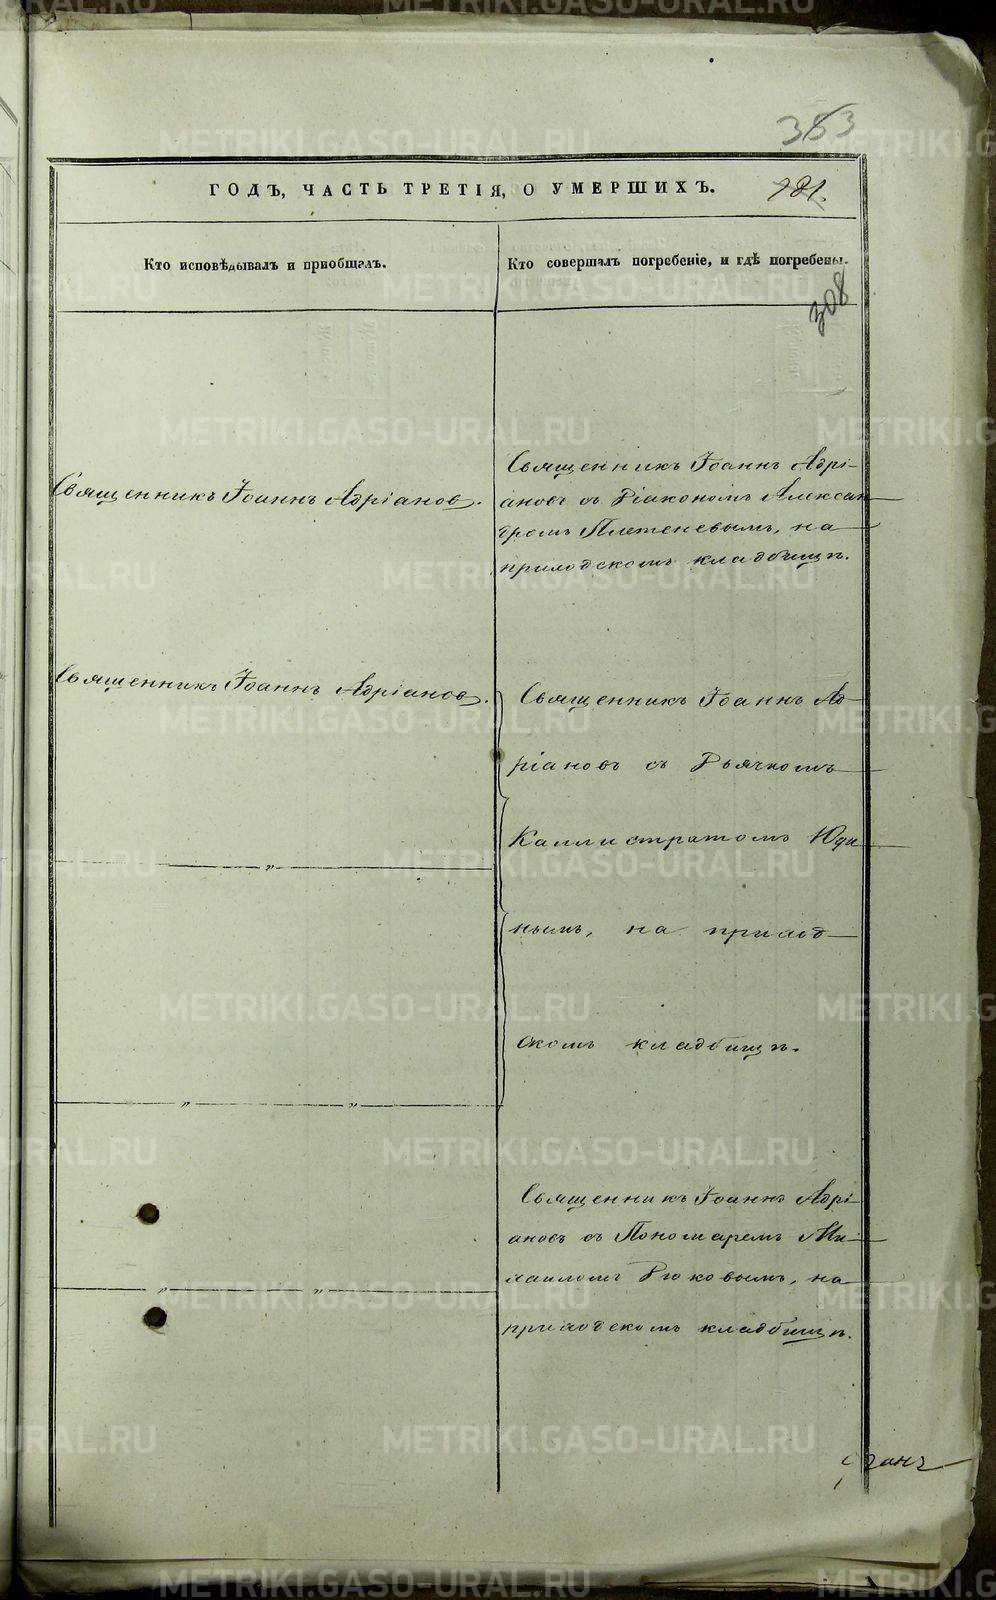 353
ГОДЪ, ЧАСТЬ ТРЕТІЯ, О УМЕРШИХЪ.
181.
Кто исповѣдывалъ и пріобщалъ.
Кто совершалъ погребеніе, и гдѣ погребены.
308
Священникъ Іоаннъ Адріановъ.
Священникъ Іоаннъ Адрі-
ановъ съ Діакономъ Алексан
дромъ Плетеневымъ, на
приходскомъ кладбищѣ.
Священникъ Іоаннъ Адріановъ.
Священникъ Іоаннъ Ад-
ріановъ съ Дьячкомъ
Каллистратомъ Юди
нымъ, на приход-
скомъ кладбищѣ.
„
„ „
Священникъ Іоаннъ Адрі-
ановъ съ Пономаремъ Ми-
хаиломъ Дюковымъ, на
приходскомъ кладбищѣ.
„ „
METRIKI.GASO-URAL.RU